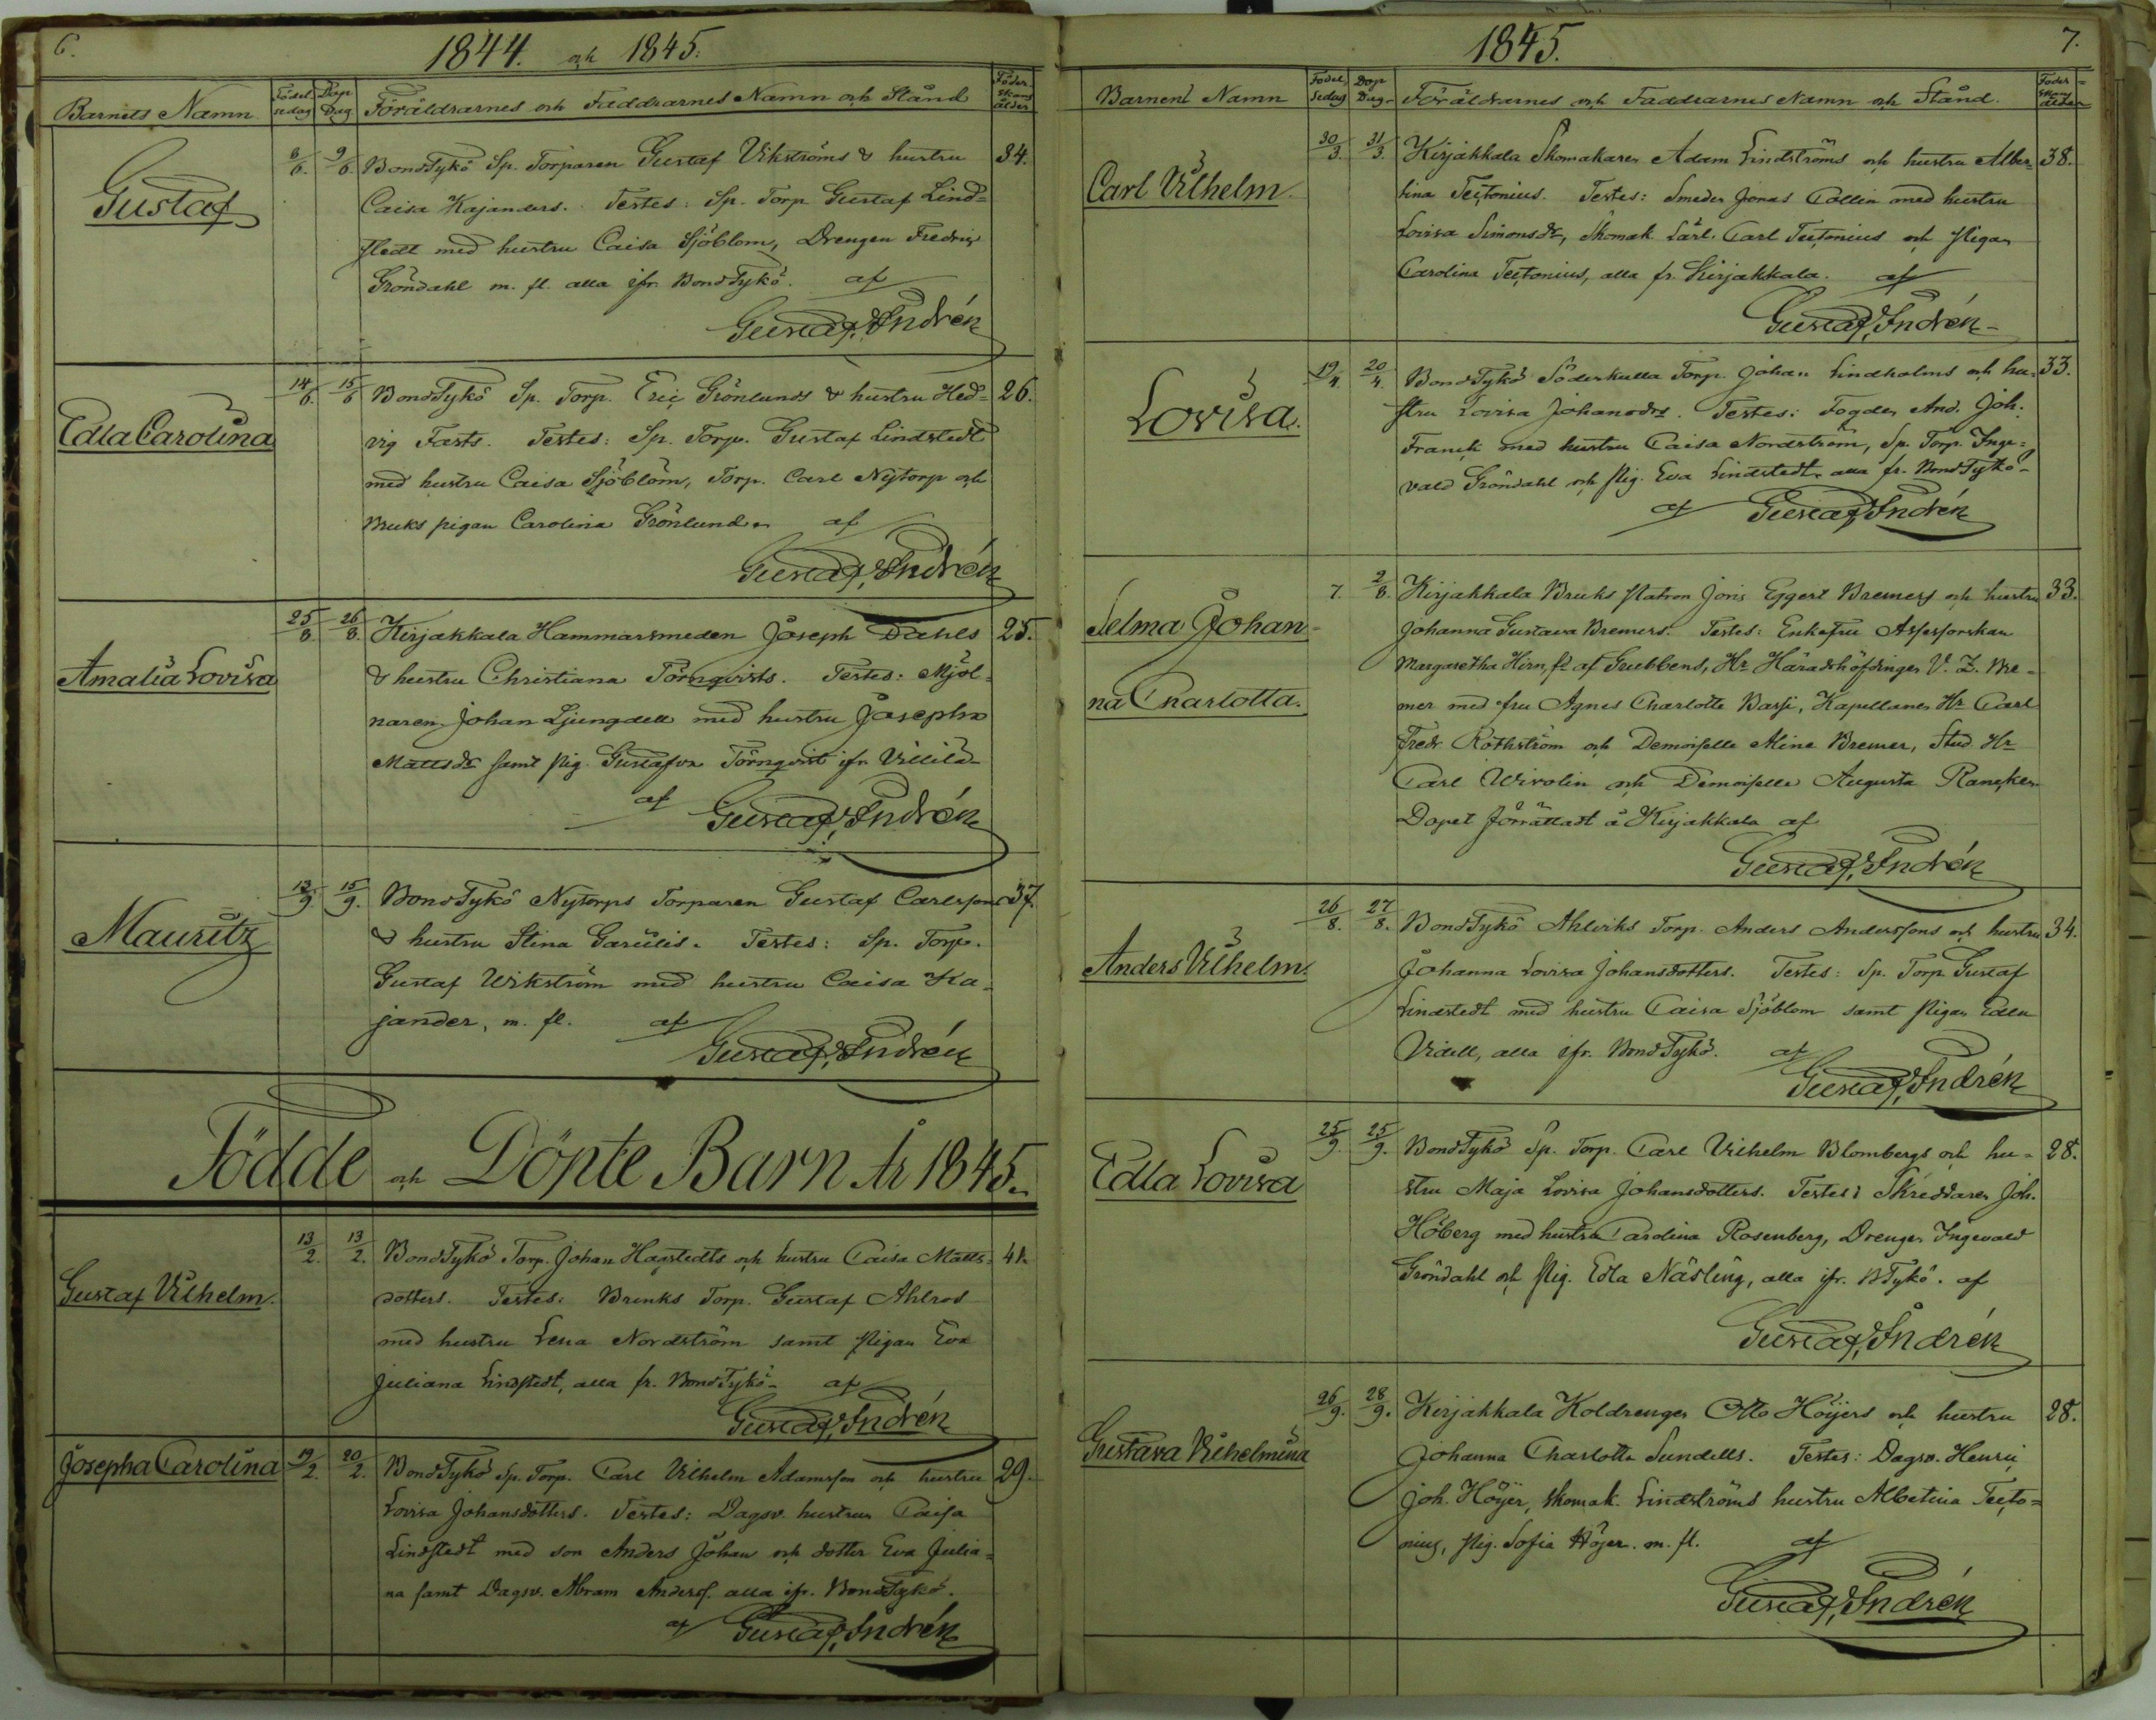 6.
1844. och 1845.
Barnets Namn. Födel sedag Dop Dag Föräldrarnes och Faddrarnes Namn och Stånd Föder skans ålder
Gustaf
8/6. 9/6. BondTykö Sp. Torparen Gustaf Vikströms & hustru 34.
Caisa Kajanders. Testes: Sp. Torp Gustaf Lind=
stedt med hustru Caisa Sjöblom, Drengen Fredric
Gröndahl m. fl. alla ifr. BondTykö. af
Gustaf Andrén
Edla Carolina
14/6. 15/6 BondTykö Sp. Torp. Eric Grönlunds & hustru Hed= 26.
vig Fasts. Testes: Sp. Torp. Gustaf Lindstedt
med hustru Caisa Sjöblom, Torp. Carl Nytorp och
Bruks pigan Carolina Grönlund. af
Gustaf Andrén
Amalia Lovisa
25/8. 26/8. Kirjakkala Hammarsmeden Joseph Dahls 25.
& hustru Christiana Törnqvists. Testes: Mjöl=
naren Johan Ljungdell med hustru Josepha
Mattsdr samt Pig. Gustafva Törnqvist ifr Villilä
af Gustaf Andrén
Mauritz
13/9. 15/9. BondTykö Nytorps Torparen Gustaf Carlssons 37.
& hustru Stina Garulis. Testes: Sp. Torp.
Gustaf Wikström med hustru Caisa Ka=
jander, m. fl. af
Gustaf Andrén
Födde och Döpte Barn År 1845.
Gustaf Vilhelm.
13/2. 13/2. BondTykö Torp. Johan Hagstedts och hustru Caisa Matts= 41.
dotters. Testes: Brinks Torp. Gustaf Ahlrod
med hustru Lena Nordström samt Pigan Eva
Juliana Lindstedt, alla fr. BondTykö. af
Gustaf Andrén
Josepha Carolina
19/2. 20/2. BondTykö Sp. Torp. Carl Vilhelm Adamsson och hustru 29.
Lovisa Johansdotters. Testes: Dagsv. hustrun Caisa
Lindstedt med son Anders Johan och dotter Eva Julia=
na samt Dagsv. Abram Anderss. alla ifr. BondTykö.
af Gustaf Andrén
1845. 7.
Barnens Namn Födel sedag Dop Dag. Föräldrarnes och Faddrarnes Namn och Stånd. Föder skans ålder
Carl Vilhelm.
30/3. 31/3. Kirjakkala Skomakaren Adam Lindströms och hustru Alber= 38.
tina Tectonius. Testes: Smeden Jonas Collin med hustru
Lovisa Simonsdr, Skomak Lärl. Carl Tectonius och Pigan
Carolina Tectonius, alla fr. Kirjakkala. af
Gustaf Andrén
Lovisa.
19/4. 20/4. BondTykö Söderkulla Torp. Johan Lindholms och hu= 33.
stru Lovisa Johansdrs. Testes: Fogden And. Joh.
Franck med hustru Caisa Nordström, Sp. Torp. Inge=
vald Gröndahl och Pig. Eva Lindstedt alla fr. BondTykö
af Gustaf Andrén
Selma Johan=
na Charlotta.
7. 2/8. Kirjakkala Bruks Patron Joris Eggert Bremers och hustru 33.
Johanna Gustava Bremers. Testes: Enkefru Assessorskan
Margaretha Hirn, fd af Grubbens, Hr Häradshöfdingen V. Z. Bre=
mer med fru Agnes Charlotte Bassi, Kapellanen Hr Carl
Fredr. Rothström och Demoiselle Mina Bremer, Stud. Hr
Carl Wirolin och Demoiselle Augusta Rancken
Dopet förrättadt å Kirjakkala af
Gustaf Andrén
Anders Vilhelm.
26/8. 27/8. BondTykö Ahlviks Torp. Anders Anderssons och hustru 34.
Johanna Lovisa Johansdotters. Testes: Sp. Torp. Gustaf
Lindstedt med hustru Caisa Sjöblom samt Pigan Edla
Videll, alla ifr. BondTykö. af
Gustaf Andrén
Edla Lovisa
25/9. 25/9. BondTykö Sp. Torp. Carl Vilhelm Blombergs och hu= 28.
stru Maja Lovisa Johansdotters. Testes: Skreddaren Joh.
Höberg med hustru Carolina Rosenberg, Drengen Ingevald
Gröndahl och Pig. Edla Näsling, alla ifr. BTykö. af
Gustaf Andrén
Gustava Vilhelmina
26/9. 28/9. Kirjakkala Koldrengen Otto Höijers och hustru 28.
Johanna Charlotta Sundells. Testes: Dagsv. Henric
Joh. Höijer, skomak. Lindströms hustru Albetina Tecto=
nius, Pig. Sofia Höjer. m. fl. af
Gustaf Andrén